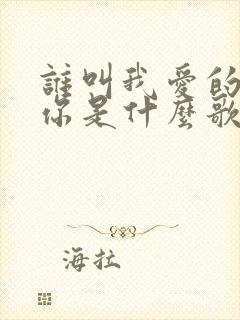 誰叫我愛的
你是什麼歌
海拉